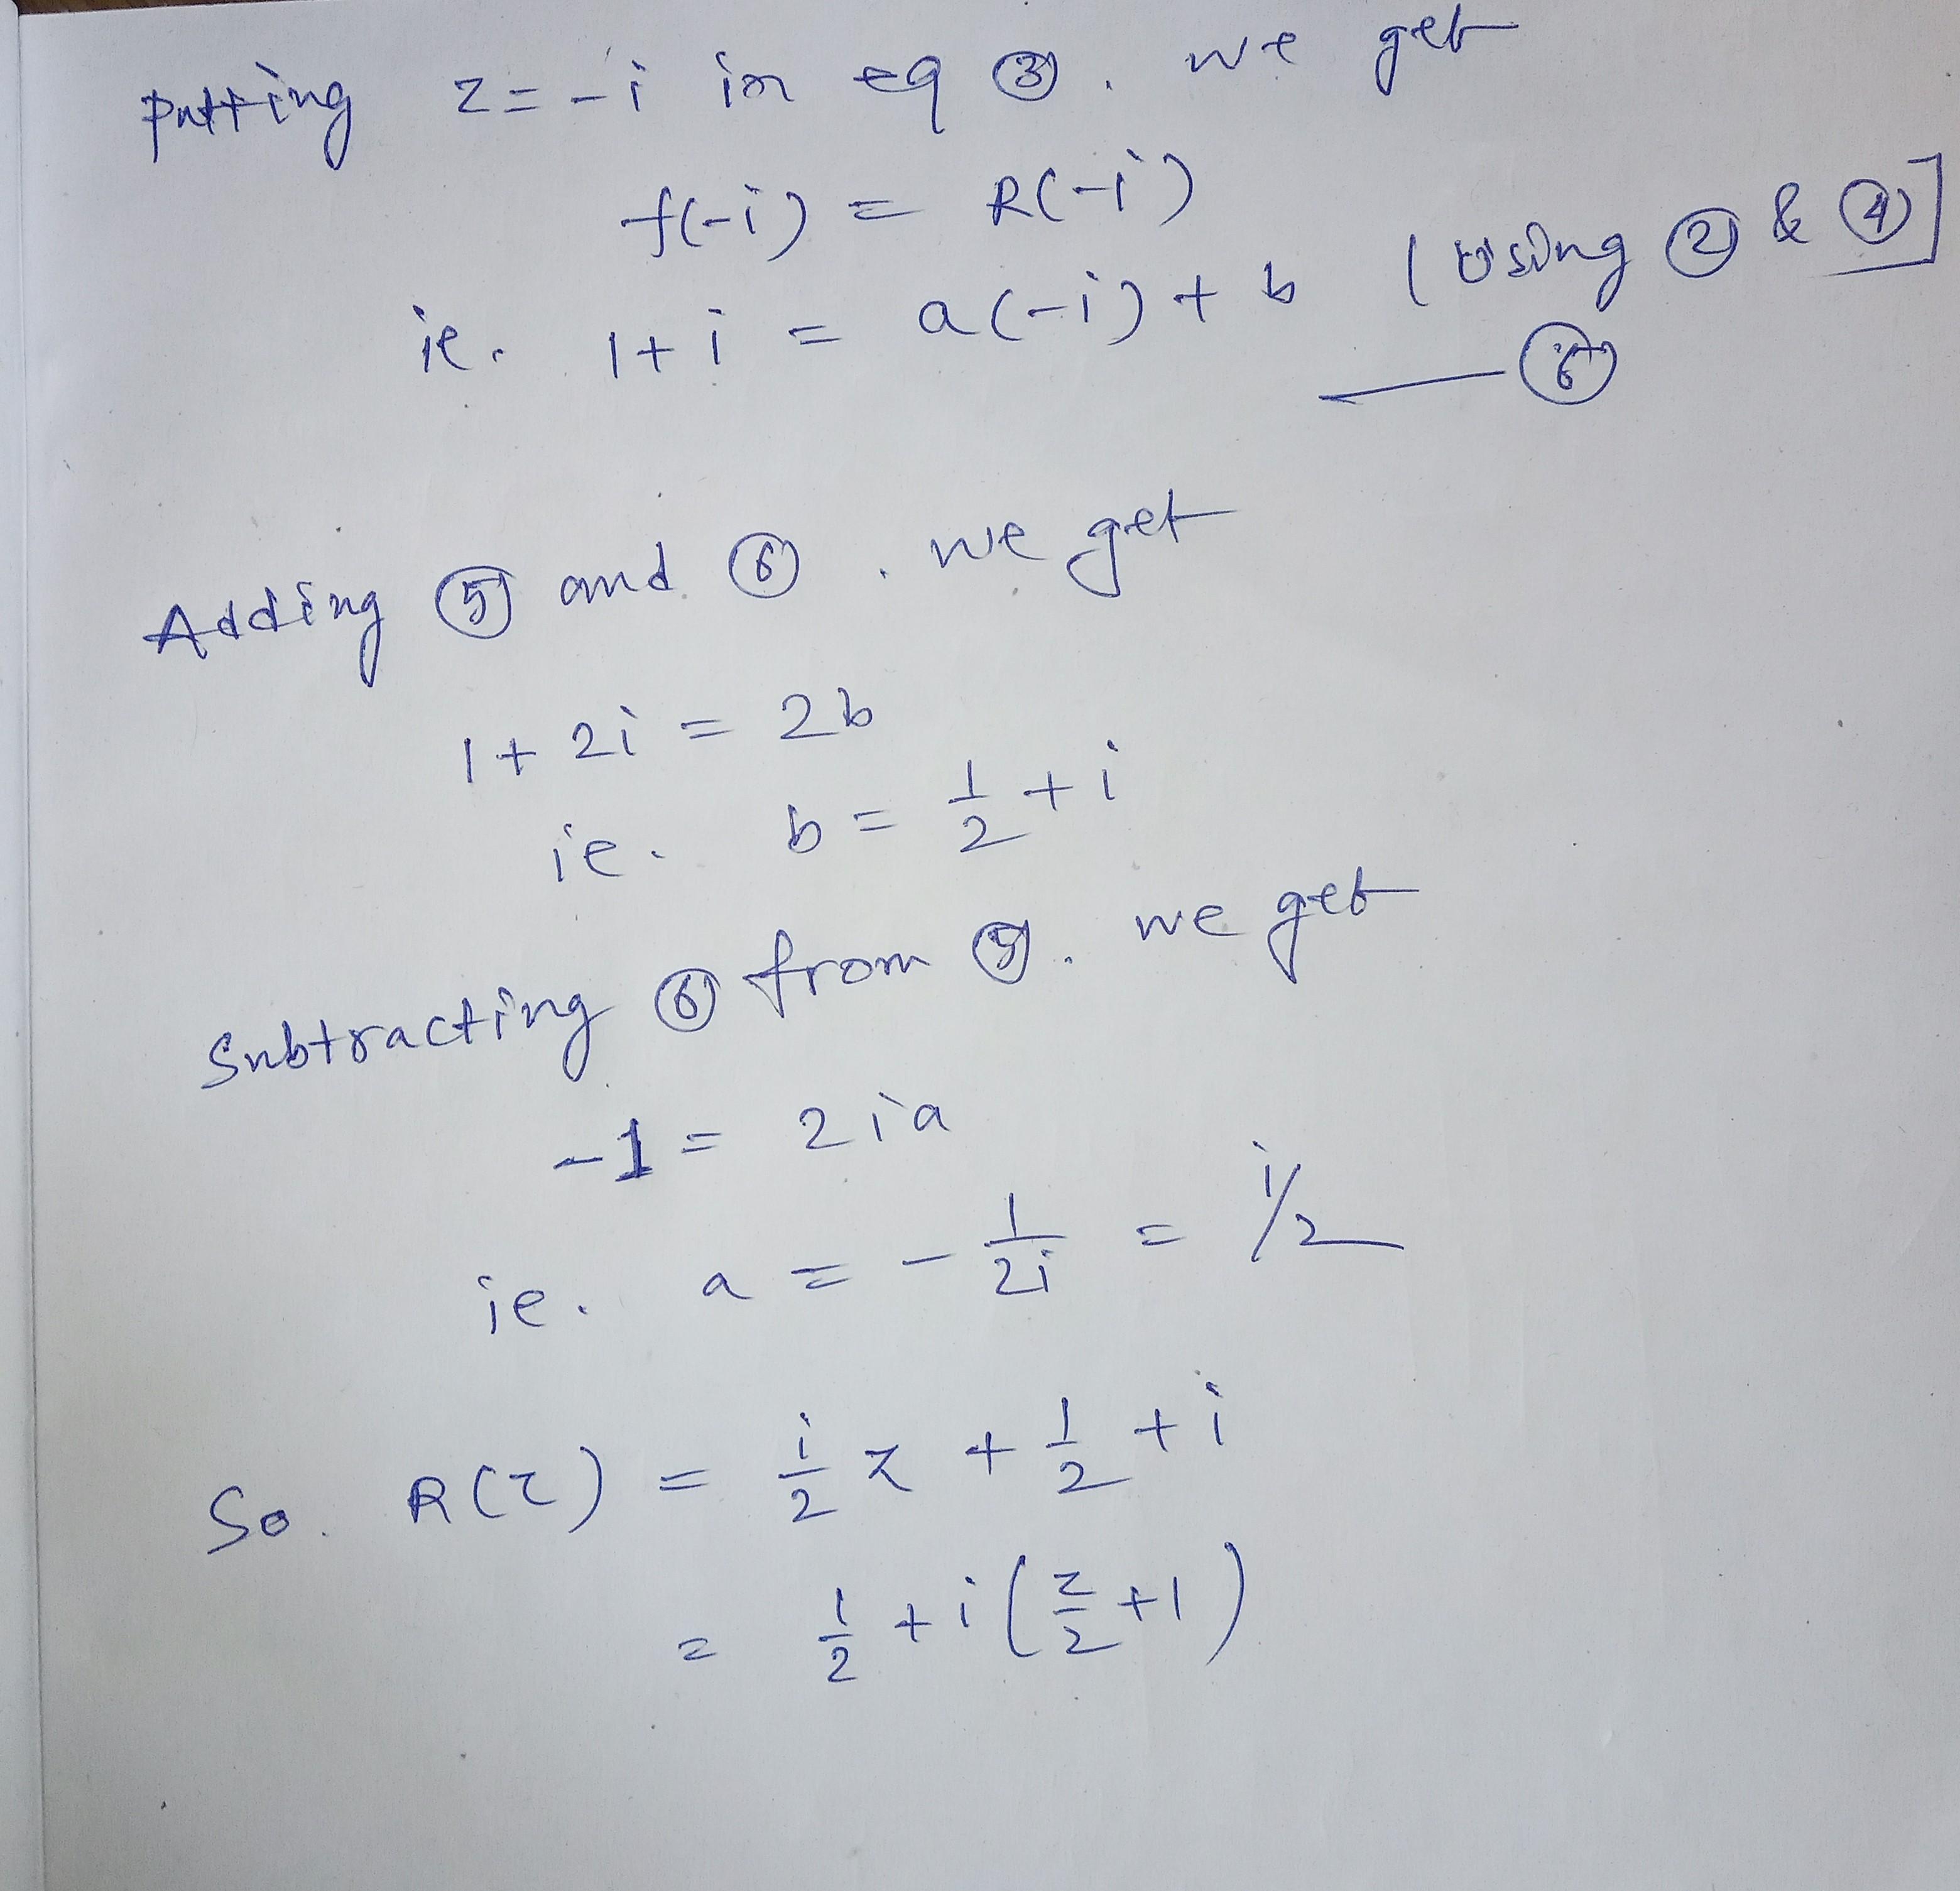 putting z = -i in eq ③. we get
f(-i) = R(-i)
ie. 1+i = a(-i) + b (using ② & ④]
⑥
Adding ⑤ and ⑥. we get
1 + 2i = 2b
ie. b = 1/2 + i
Subtracting ⑥ from ⑤. we get
-1 = 2ia
ie. a = - 1/2i = i/2
So. R(z) = i/2 z + 1/2 + i
= 1/2 + i(z/2 + 1)